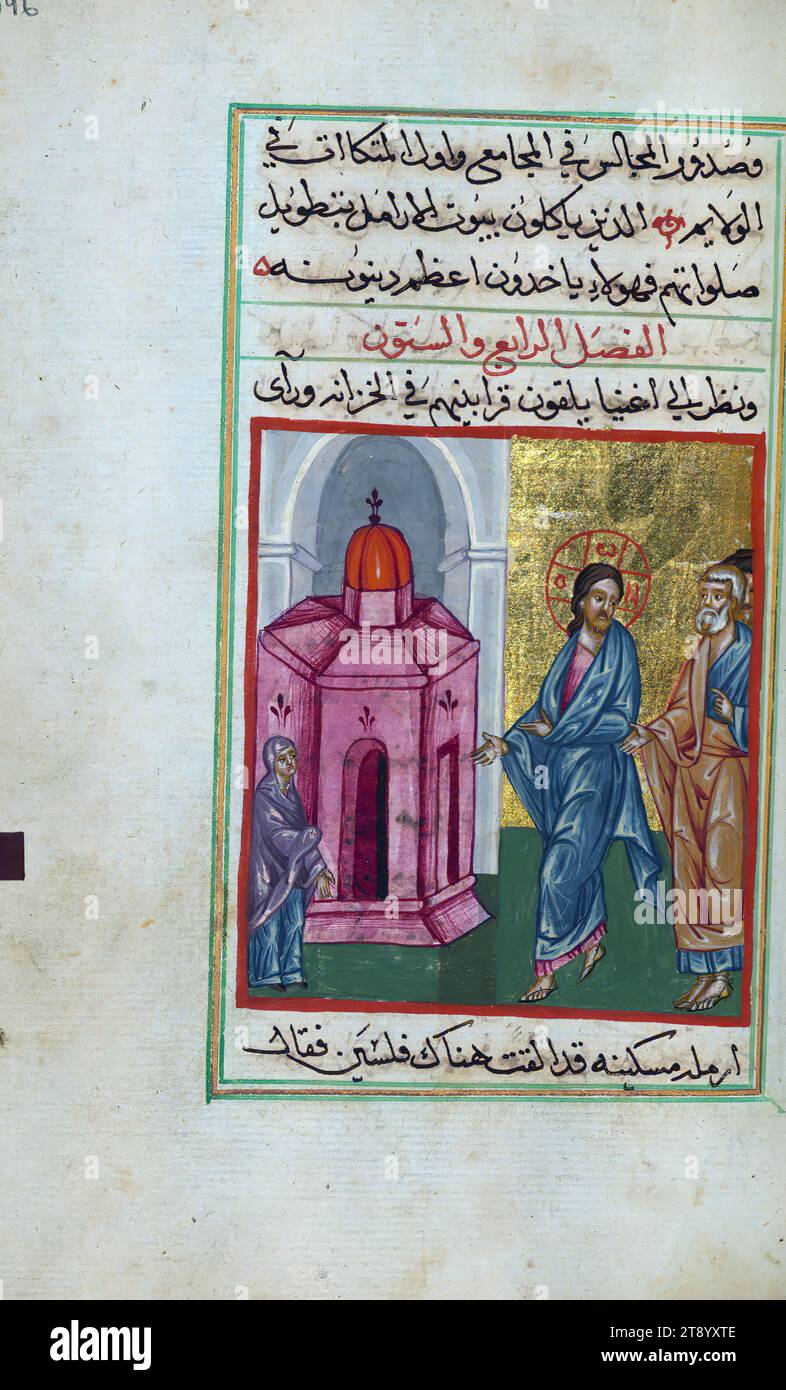 وصدور المجالس في المجامع واول المتكاات في
الولايم الذين ياكلون بيوت الارامل بتطويل
صلواتهم فهولاء ياخدون اعظم دينونه
الفصل الرابع والستون
ونظر الي اغنيا يلقون قرابينهم في الخزانه ورآي
Ѡ
О
N
ارمله مسكينه قد القت هناك فلسين فقال
alamy
Image ID: 2T8YXTE
www.alamy.com